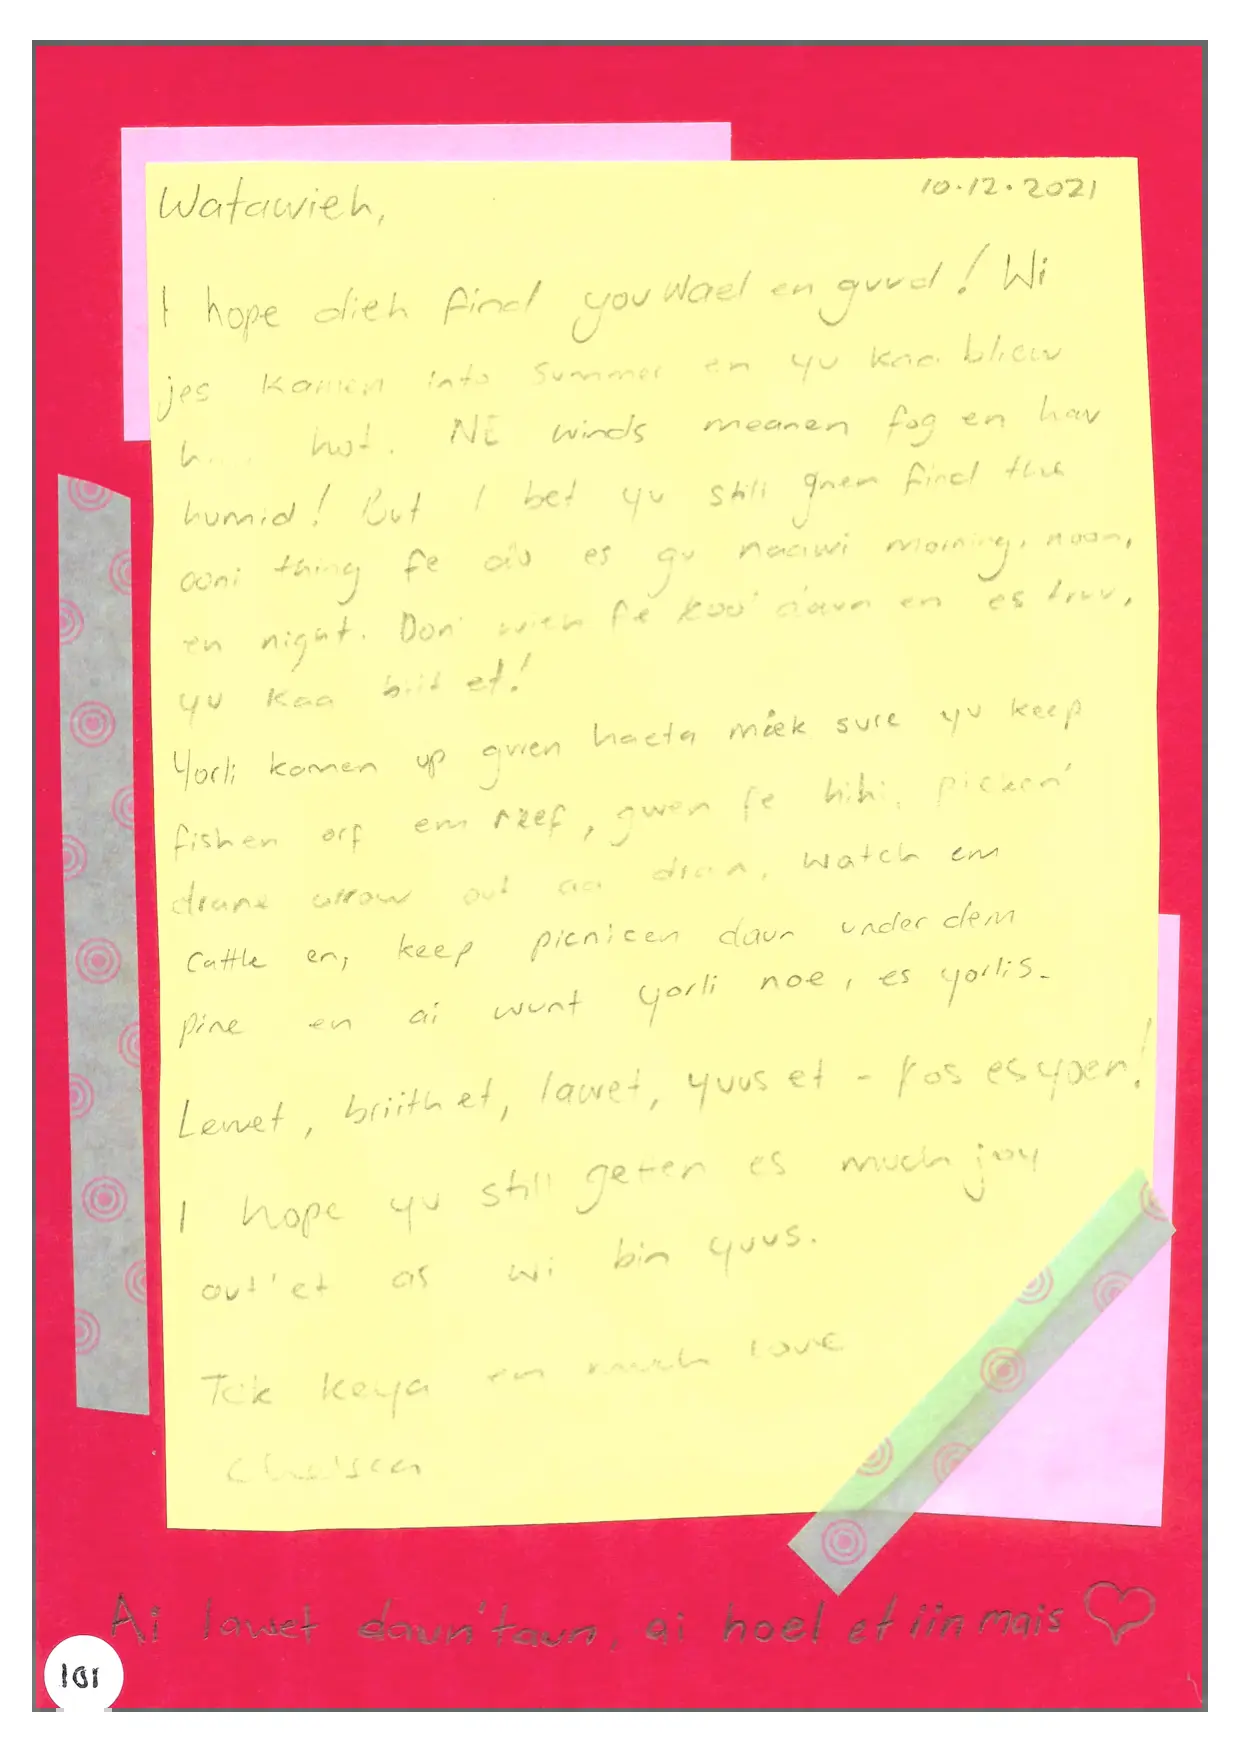 10.12.2021
Watawieh,
I hope dieh find you wael en guud! Wi
jes kamen into summer en yu kaa bliew
hot. NE winds meanen fog en haw
humid! But I bet yu still gnen find the
ooni thing fe du es gu naawi morning, noon,
en night. Don' wieh fe koo' daun en es truu,
yu kaa biit et!
Yorli komen up gwen haeta mæk sure yu keep
fishen orf em reef, gwen fe hihi, picken'
drane arrow out aa drain, watch em
cattle en, keep picnicen daun under dem
pine en ai wunt yorli noe, es yorlis-
Lewet, briith et, lawet, yuus et - kos es yoen!
I hope yu still geten es much joy
out'et as wi bin yuus.
Tek keya en much love
Chelsea
Ai lawet daun'taun, ai hoel et iin mais
101